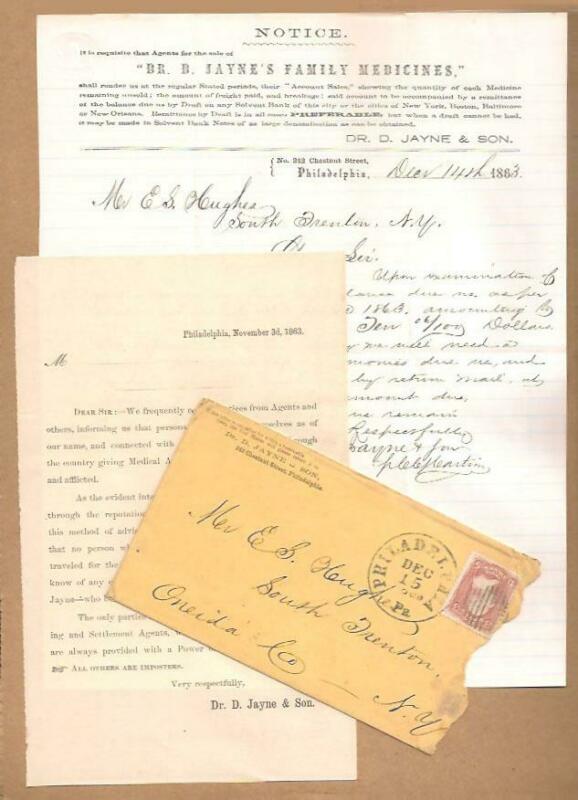 NOTICE.
It is requisite that Agents for the sale of
"DR. D. JAYNE'S FAMILY MEDICINES,"
shall render us at the regular Stated periods, their "Account Sales," showing the quantity of each Medicine
remaining unsold; the amount of freight paid, and breakage; said account to be accompanied by a remittance
of the balance due us by Draft on any Solvent Bank of this city or the cities of New York, Boston, Baltimore
or New Orleans. Remittance by Draft is in all cases PREFERABLE; but when a draft cannot be had,
it may be made in Solvent Bank Notes of as large denomination as can be obtained.
DR. D. JAYNE & SON.
No. 242 Chestnut Street,
Philadelphia, Decr 14th 1863.
Mr E S. Hughes
South Trenton, N.Y.
Sir.
Upon examination of
due us as per
1863, amounting to
Ten 06/100 Dollars.
we will need
monies due us, and
by return mail,
amount due,
remain
Respectfully
Jayne & Son
Philadelphia, November 3d, 1863.
M
DEAR SIR:—We frequently from Agents and
others, informing us that persons as of
our name, and connected with
the country giving Medical
and afflicted.
As the evident
through the
this method of
that no person
traveled for the
know of any
Jayne—who
The only parties
ing and Settlement Agents,
are always provided with a Power
ALL OTHERS ARE IMPOSTERS.
Very respectfully,
Dr. D. Jayne & Son.
Dr. D. JAYNE & SON,
242 Chestnut Street, Philadelphia.
Mr E S. Hughes
South Trenton,
Oneida Co
N.Y
PHILADELPHIA
DEC
15
1863
Pa.